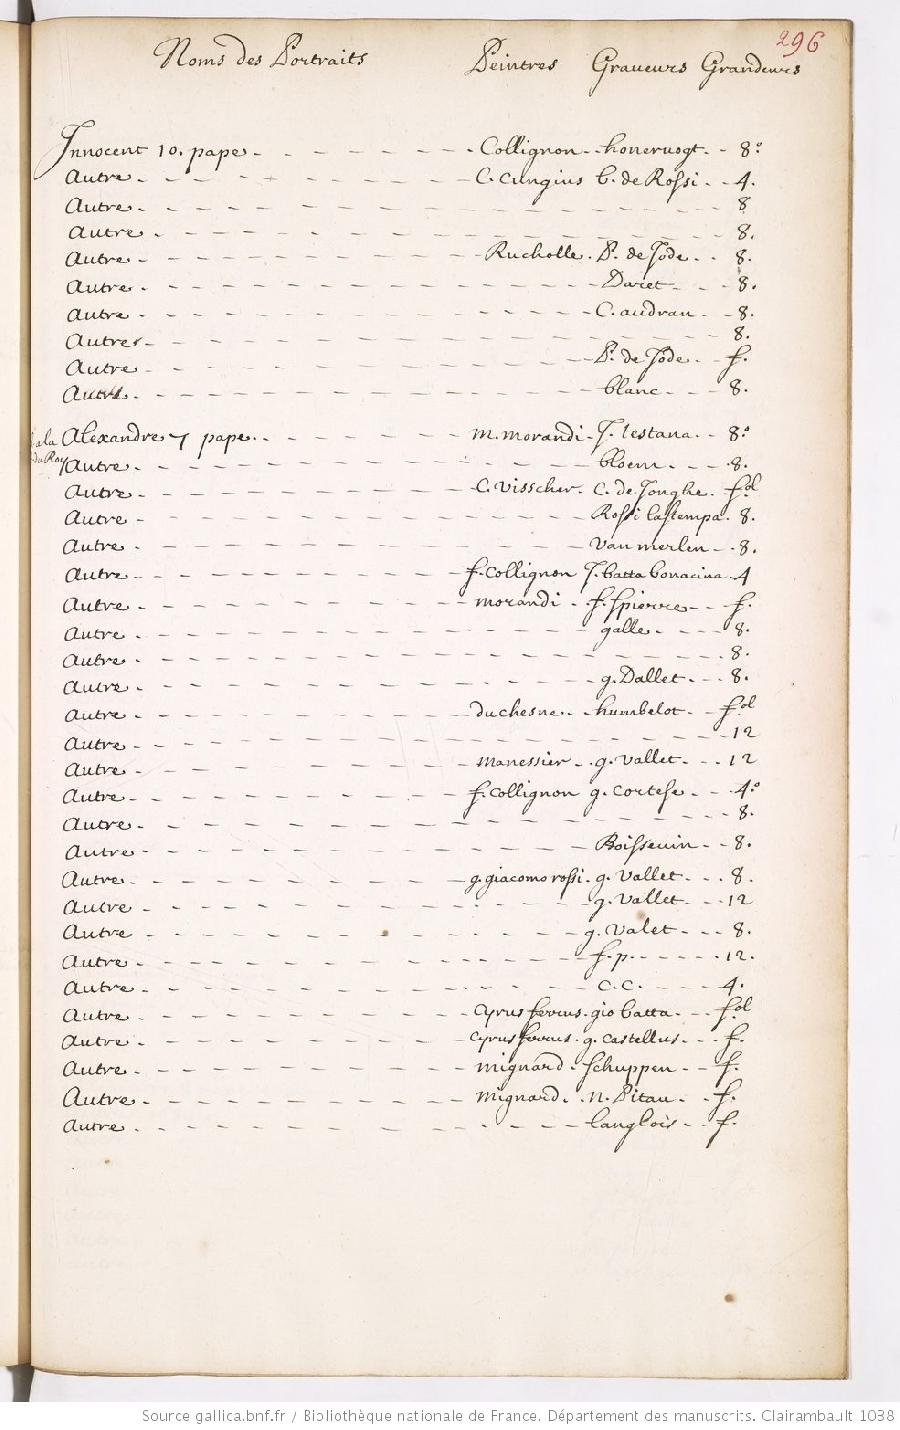 296
Noms des Portraits Peintres Graueurs Grandeurs
Innocent 10. pape - - - - - - Collignon - honeruogt - - 8.o
Autre - - - - - - C. Cungius b. de Rossi - - 4.
Autre - - - - - - 8
Autre - - - - - - 8.
Autre - - - - - - Rucholle. P. de Jode - - 8.
Autre - - - - - - Daret - - - 8.
Autre - - - - - - C. audran - - 8.
Autres - - - - - - 8.
Autre - - - - - - P. de Jode - - f.
Autre - - - - - - blanc - - - 8.
Alexandre 7 pape - - - - - - m. morandi - J. testana - - 8.o
ala
du Roy
Autre - - - - - - bloem - - - 8.
Autre - - - - - - C. Visscher - C. de Jonghe - fol
Autre - - - - - - Rossi lastempa - 8.
Autre - - - - - - Van merlen - - 8.
Autre - - - - - - f. Collignon J. batta bonacina 4
Autre - - - - - - morandi - f. Spierre - - f.
Autre - - - - - - galle - - - 8.
Autre - - - - - - 8.
Autre - - - - - - g. Dallet - - - 8.
Autre - - - - - - duchesne - - humbelot - - fol
Autre - - - - - - 12
Autre - - - - - - manessier - - g. Vallet - - - 12
Autre - - - - - - f. Collignon g. Cortese - - 4.o
Autre - - - - - - 8.
Autre - - - - - - Boisseuin - - 8.
Autre - - - - - - g. giacomo rossi - g. Vallet - - - 8.
Autre - - - - - - g. Vallet - - - 12
Autre - - - - - - g. Valet - - - 8.
Autre - - - - - - f. p. - - - - 12.
Autre - - - - - - C. C. - - - - 4.
Autre - - - - - - Cyrus ferrus - gio batta - - fol
Autre - - - - - - Cyrus ferrus - g. Castellus - - - f.
Autre - - - - - - mignard - Schuppen - - f.
Autre - - - - - - mignard - N. Pitau - - f.
Autre - - - - - - langlois - - f.
Source gallica.bnf.fr / Bibliothèque nationale de France. Département des manuscrits. Clairambault 1038